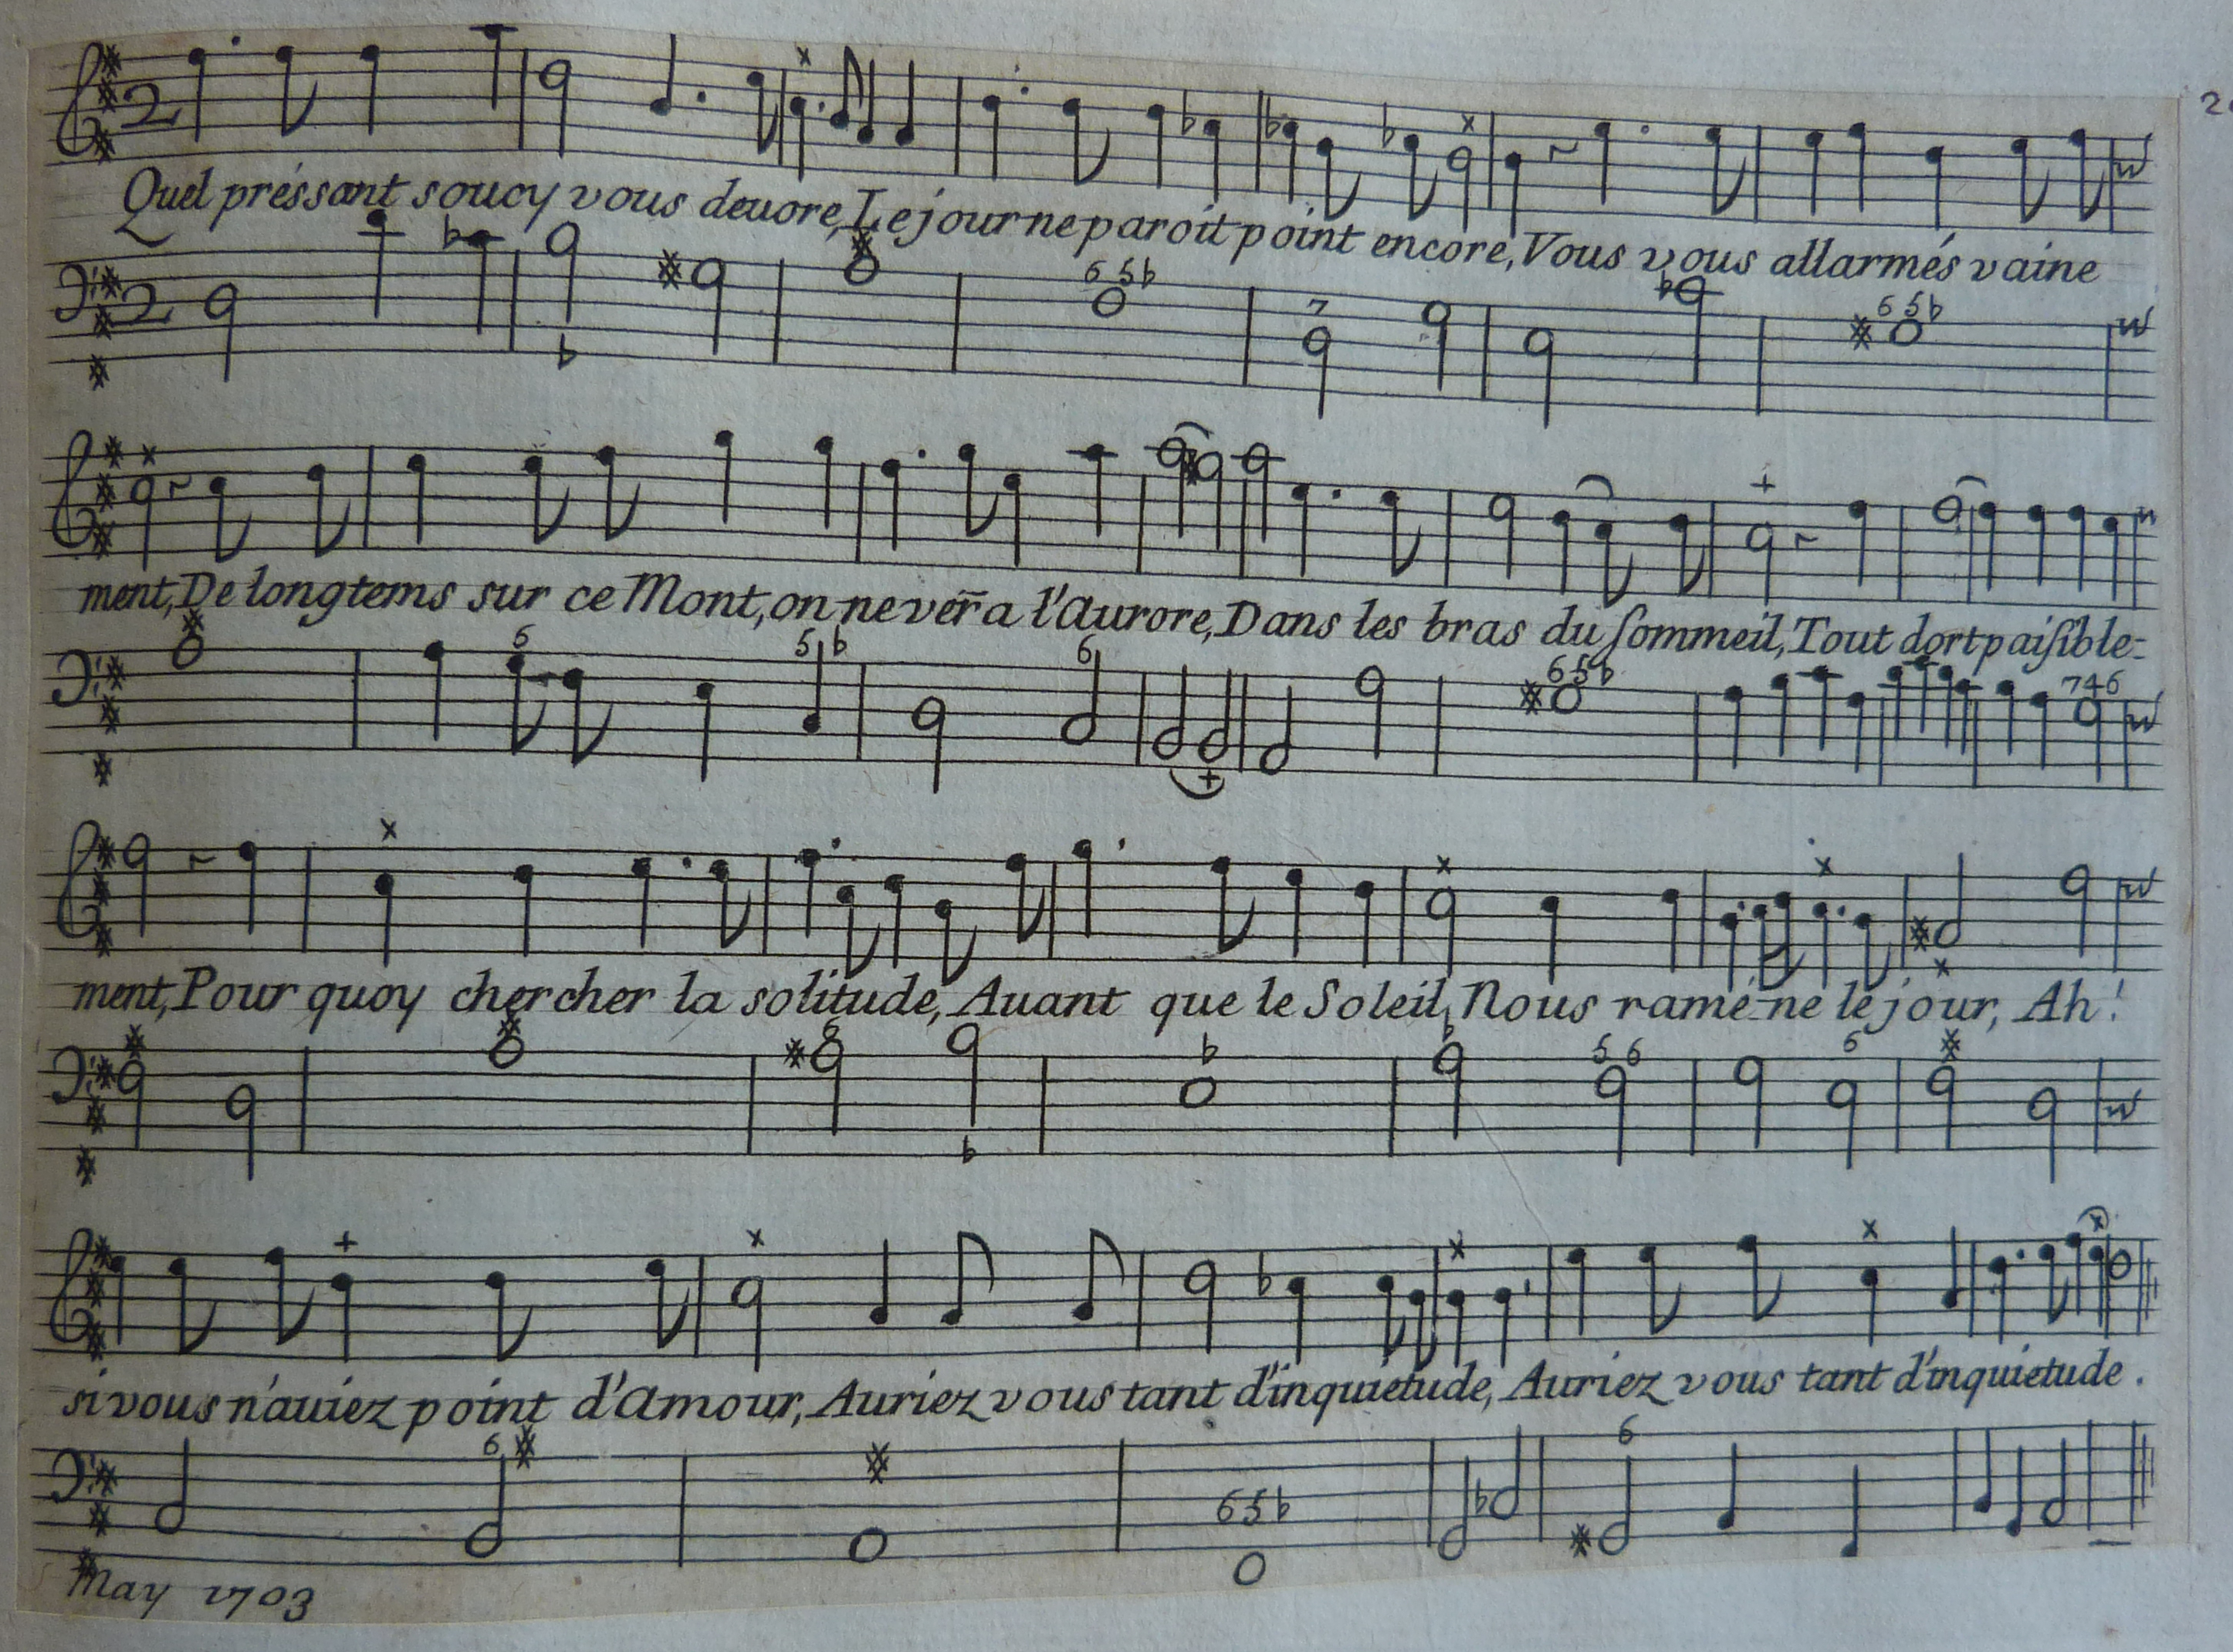 Quel préssant soucy vous deuore, Le jour ne paroit point encore, Vous vous allarmés vaine
ment, De longtems sur ce Mont, on ne verra l'Aurore, Dans les bras du sommeil, Tout dort paisible-
ment, Pour quoy chercher la solitude, Auant que le Soleil, Nous ramé-ne le jour, Ah!
si vous n'auiez point d'Amour, Auriez vous tant d'inquietude, Auriez vous tant d'inquietude.
May 1703